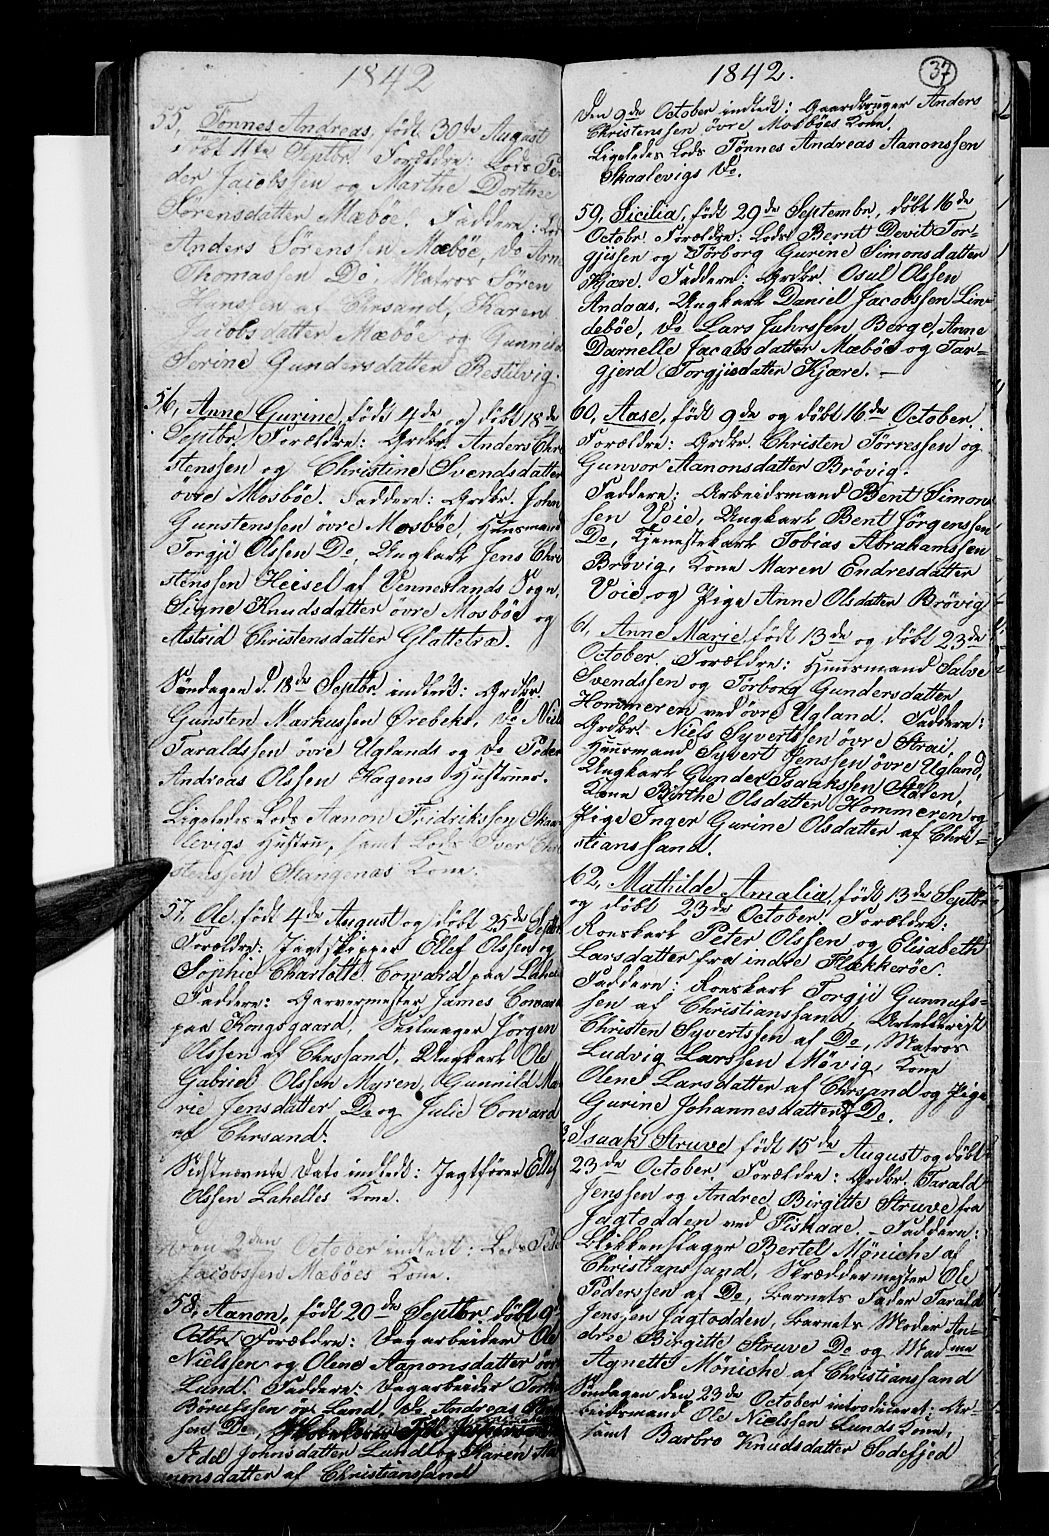 1842
55, Tønnes Andreas, født 30te August
døbt 11te Septbr. Forældre: Lods Pe-
der Jacobssen og Marthe Dorthee
Sørensdatter Mæbøe. Faddere: Lods
Anders Sørenssen Mæbøe, Do Arne
Thomassen Do, Matros Søren
Hanssen af Chrsand, Karen
Jacobsdatter Mæbøe og Gunnild
Serine Gundersdatter Bestelvig.
56, Anne Gurine, født 4de og døbt 18de
Septbr. Forældre: Grdbr. Anders Chri-
stenssen og Christine Svendsdatter
øvre Mosbøe. Faddere: Grdbr. John
Gunstenssen øvre Mosbøe, Huusmand
Torgje Olssen Do, Ungkarl Jens Chri-
stenssen Heisel af Vennesslands Sogn,
Signe Knudsdatter øvre Mosbøe og
Astrid Christensdatter Glattetræ.
Søndagen d. 18de Septbr. indledt: Grdbr.
Gunsten Markussen Ørebeks, Do Niels
Taraldssen øvre Uglands og Do Peder
Andreas Olssen Hagens Hustruer.
Ligeledes Lods Aanon Fredrikssen Skaa-
levigs Hustru, samt Lods Iver Chri-
stenssen Stangenæs Kone.
57, Ole, født 4de August og døbt 25de Septbr.
Forældre: Jagtskipper Ellef Olssen og
Sophie Charlotte Coward paa Lahelle
Faddere: Garvermester James Coward
paa Kongsgaard, Seilmager Jørgen
Olssen af Chrssand, Ungkarl Ole
Gabriel Olssen Myren, Gunnild Ma-
rie Jensdatter Do og Julie Coward
af Chrsand.
Sidstnævnte Dato indledt: Jagtfører Ellef
Olssen Lahelles Kone.
Den 2den October indledt: Lods Peder
Jacobssen Mæbøes Kone.
58, Aanon, født 20de Septbr. døbt 9de
Octbr. Forældre: Dagarbeider Ole
Nielssen og Olene Aanonsdatter øvre
Lund. Faddere: Dagarbeider
ør Lund, Do Andreas
sen Do,
Adel Johnsdatter Lund og Karen Aa-
nonsdatter af Christianssand
1842.
37
Den 9de October indledt: Gaardbruger Anders
Christenssen øvre Mosbøes Kone.
Ligeledes Lods Tønnes Andreas Aanonssen
Skaalevigs Do.
59, Sicilia, født 29de Septembr, døbt 16de
Octobr. Forældre: Lods Bernt Devit Tor-
gjissen og Torborg Gurine Simonsdatter
Kjære. Faddere: Grdbr. Osul Olssen
Andaas, Ungkarl Daniel Jacobssen Lin-
debøe, Do Lars Juhrssen Berge, Anne
Darnelle Jacobsdatter Mæbøe og Tar-
gjerd Torgjisdatter Kjære.
60, Aase, født 9de og døbt 16de October.
Forældre: Grdbr. Christen Tørressen og
Gunvor Aanonsdatter Brøvig.
Faddere: Arbeidsmand Bent Simons-
sen Voie, Ungkarl Bent Jørgenssen
Do, Tjenestekarl Tobias Abrahamssen
Brøvig, Kone Maren Endresdatter
Voie og Pige Anne Olsdatter Brøvig
61, Anne Marie, født 13de og døbt 23de
October. Forældre: Huusmand Salve
Svendssen og Torborg Gundersdatter
Hommeren ved øvre Ugland. Faddere:
Grdbr. Niels Syvertssen øvre Strai,
Huusmand Syvert Jenssen øvre Ugland,
Ungkarl Gunder Isaakssen Stølen,
Kone Børthe Olsdatter Hommeren og
Pige Inger Gurine Olsdatter af Chri-
stianssand.
62, Mathilde Amalia, født 13de Septbr.
og døbt 23de October. Forældre:
Roeskarl Peter Olssen og Elisabeth
Larsdatter fra indre Flækkerøe.
Faddere: Roeskarl Torgje Gunnufs-
sen af Christianssand, Artellerist
Christen Syvertssen af Do, Matros
Ludvig Larssen Møvig, Kone
Olene Larsdatter af Chrsand og Pige
Gurine Johannesdatter af Do.
Isaak Struve født 15de August og døbt
23de October. Forældre: Grdbr. Tarald
Jenssen og Andree Birgitte Struve fra
Jagtodden ved Fiskaae. Faddere:
Blikkenslager Bertel Møniche af
Christianssand, Skræddermester Ole
Pederssen af Do, Barnets Fader Tarald
Jenssen Jagtodden, Barnets Moder An-
dree Birgitte Struve Do og Madme
Agnette Møniche af Christianssand
Søndagen den 23de October introduceret: Ar-
beidsmand Ole Nielssen Lunds Kone,
samt Barbro Knudsdatter Sodefjed